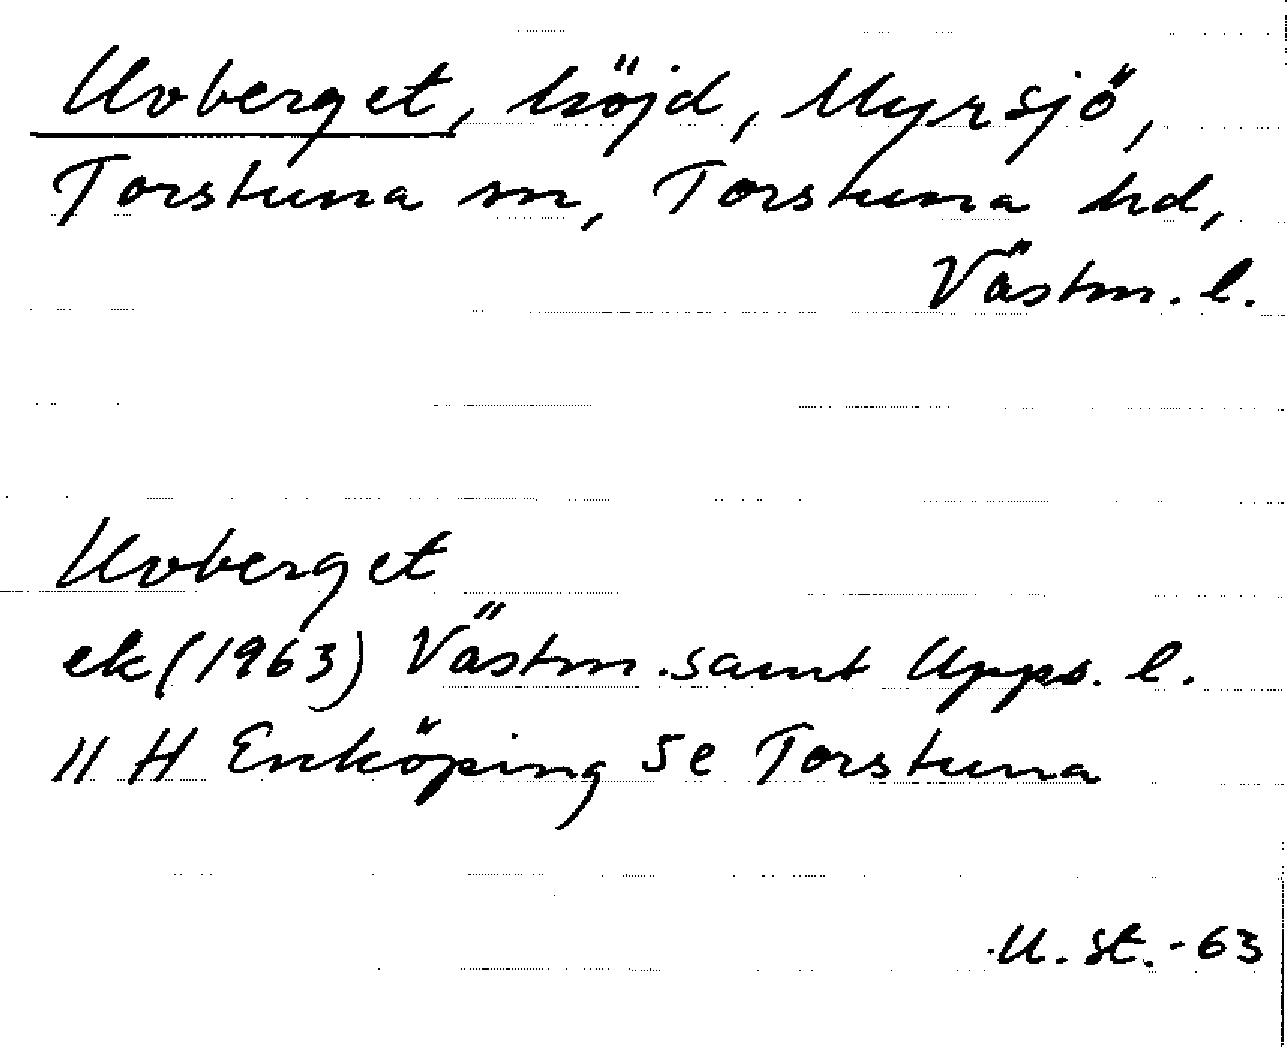 Uvberget, höjd, Myrsjö,
Torstuna sn, Torstuna hd,
Västm. l.
Uvberget
ek (1963) Västm. samt Upps. l.
11 H Enköping 5e Torstuna
U. St. -63